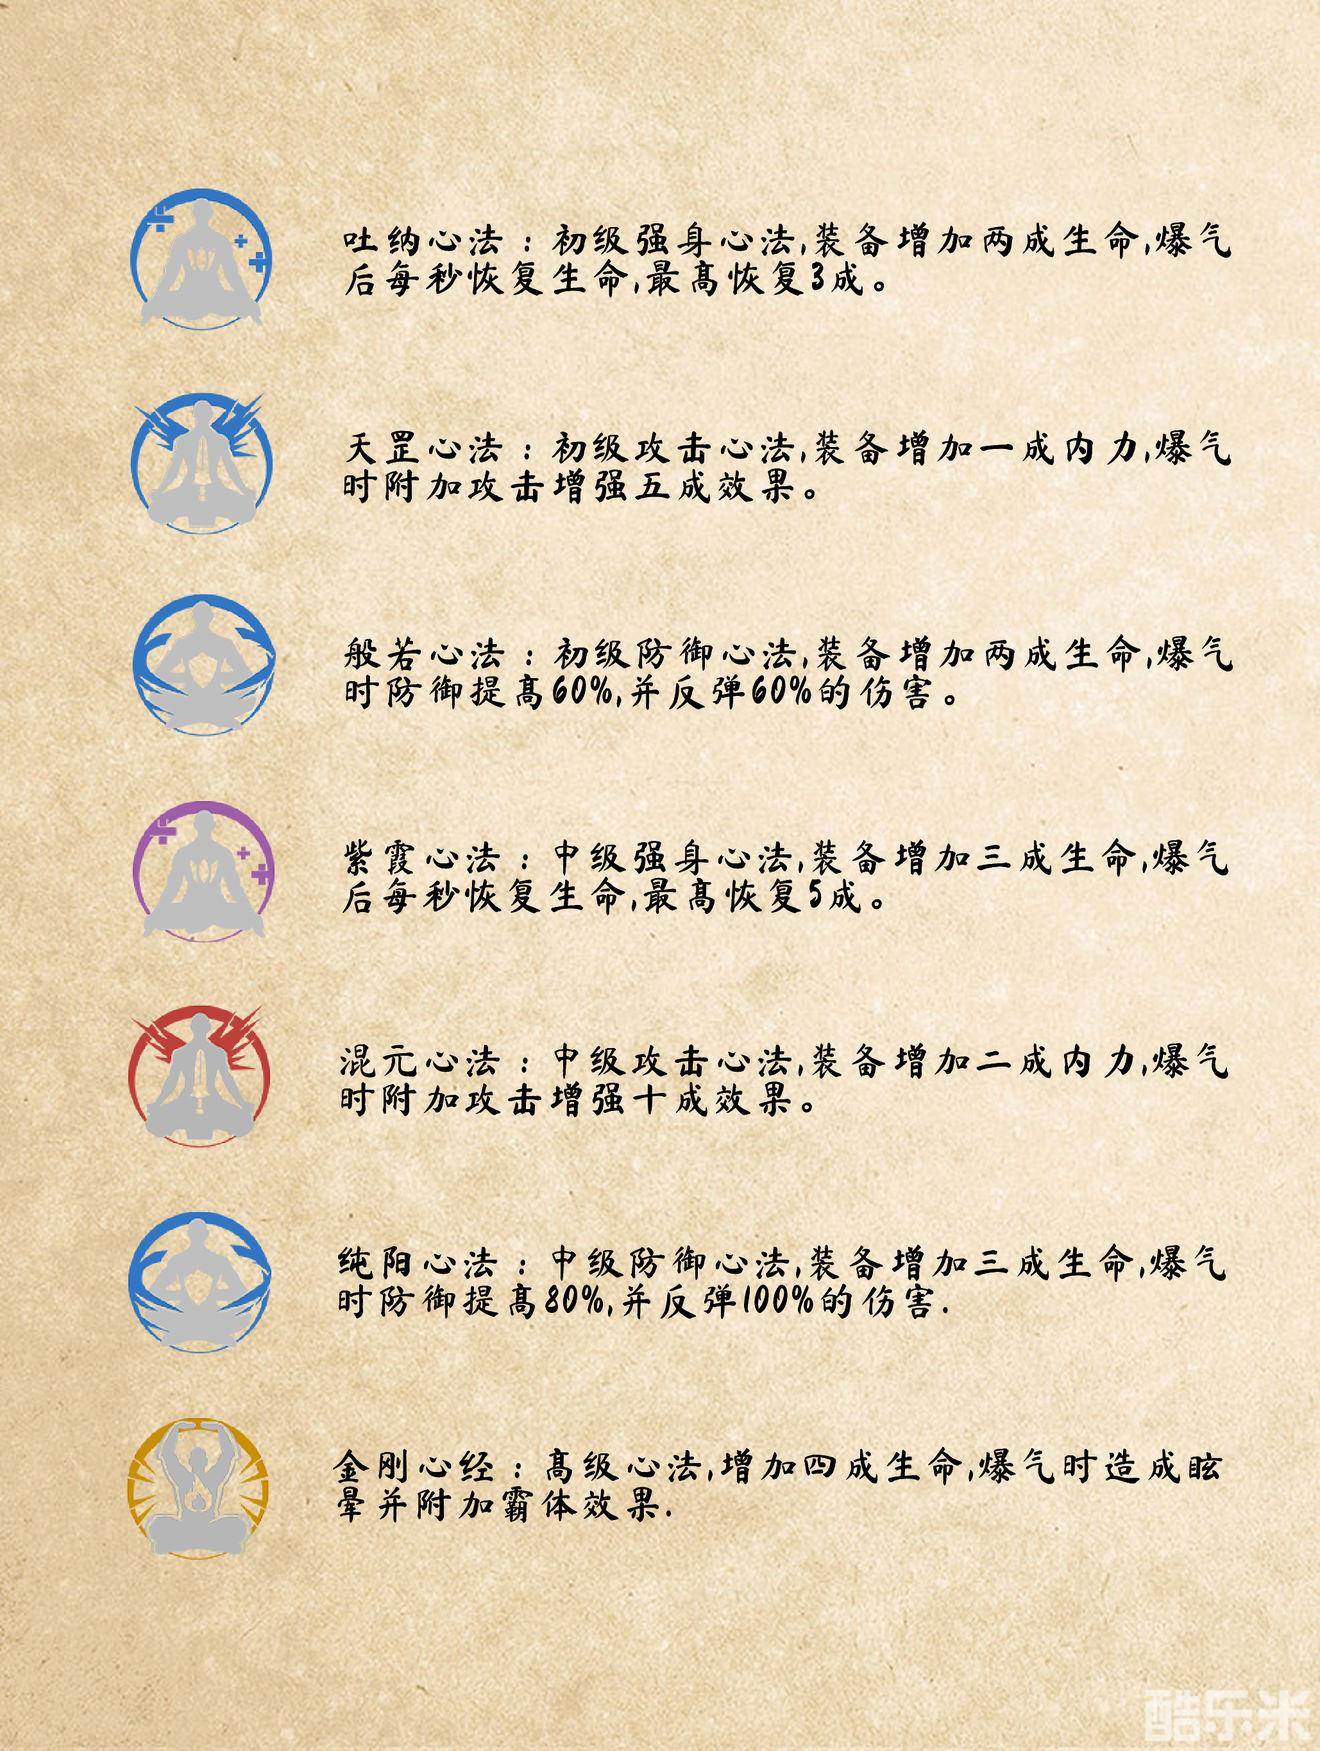 吐纳心法：初级强身心法,装备增加两成生命,爆气
后每秒恢复生命,最高恢复3成。
天罡心法：初级攻击心法,装备增加一成内力,爆气
时附加攻击增强五成效果。
般若心法：初级防御心法,装备增加两成生命,爆气
时防御提高60%,并反弹60%的伤害。
紫霞心法：中级强身心法,装备增加三成生命,爆气
后每秒恢复生命,最高恢复5成。
混元心法：中级攻击心法,装备增加二成内力,爆气
时附加攻击增强十成效果。
纯阳心法：中级防御心法,装备增加三成生命,爆气
时防御提高80%,并反弹100%的伤害.
金刚心经：高级心法,增加四成生命,爆气时造成眩
晕并附加霸体效果.
酷乐米